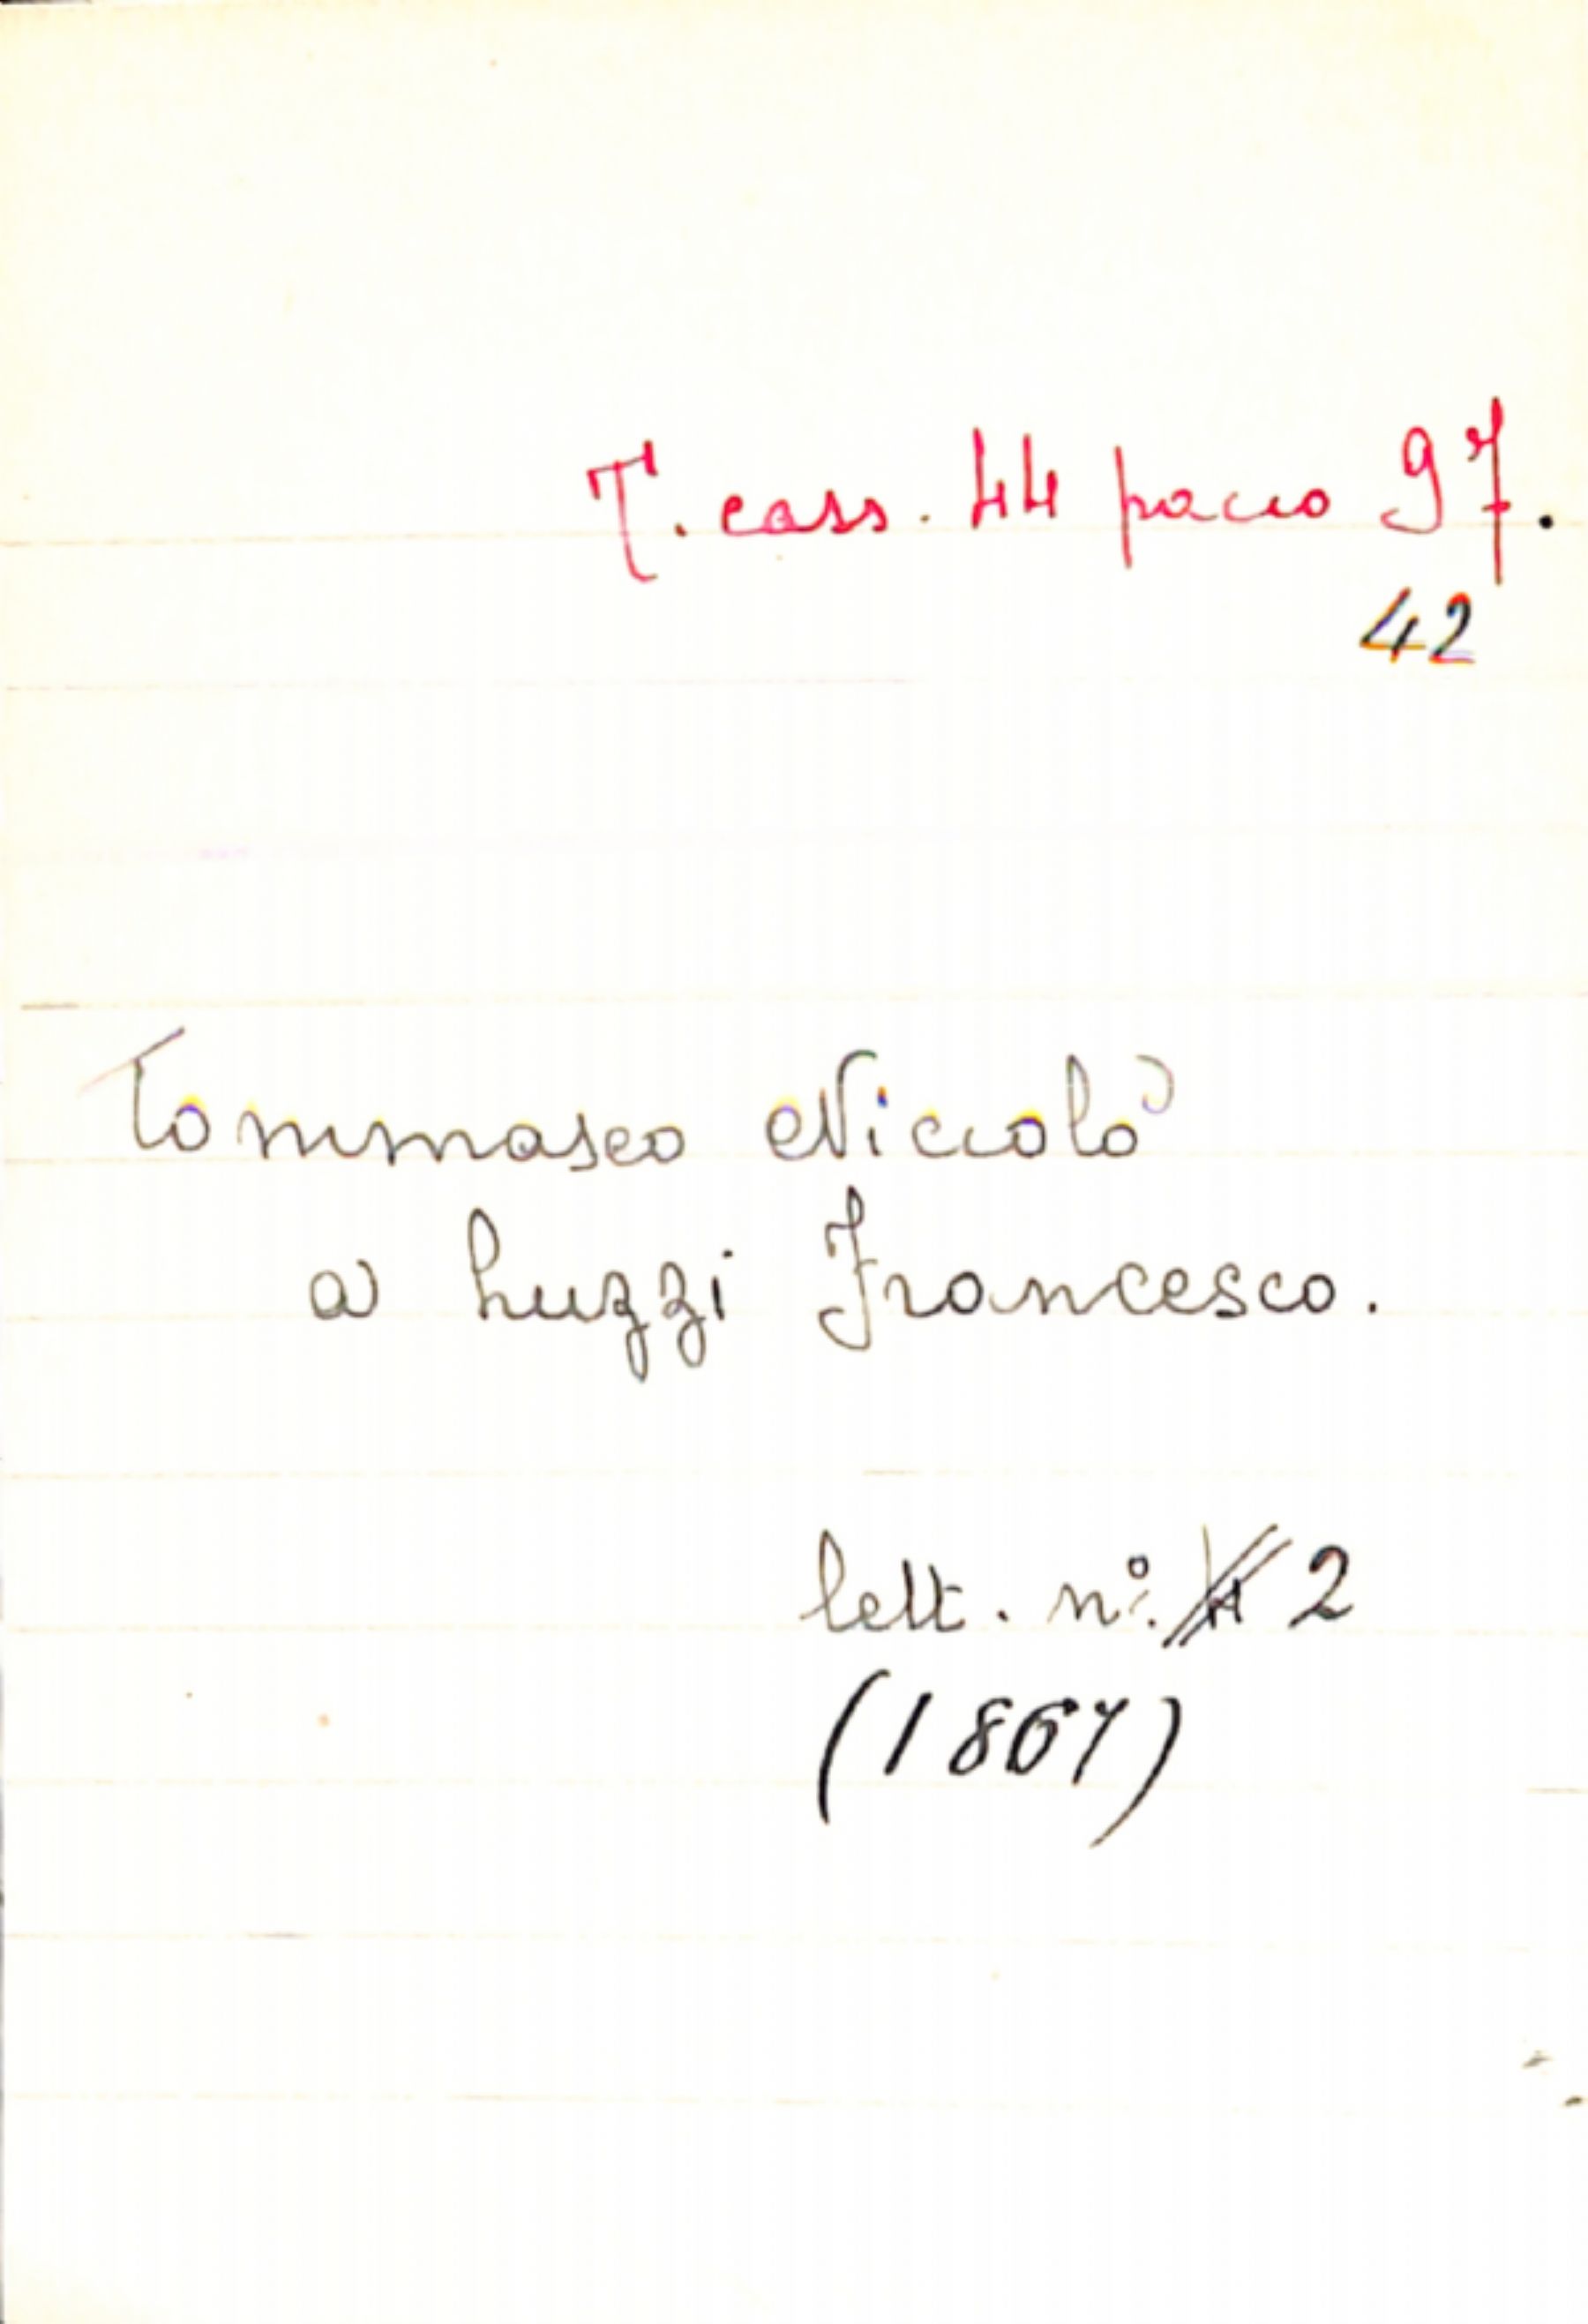 T. cass. 44 pacco 97.
42
Tommaseo Niccolò
a Luzzi Francesco.
lett. n°. 2
(1867)